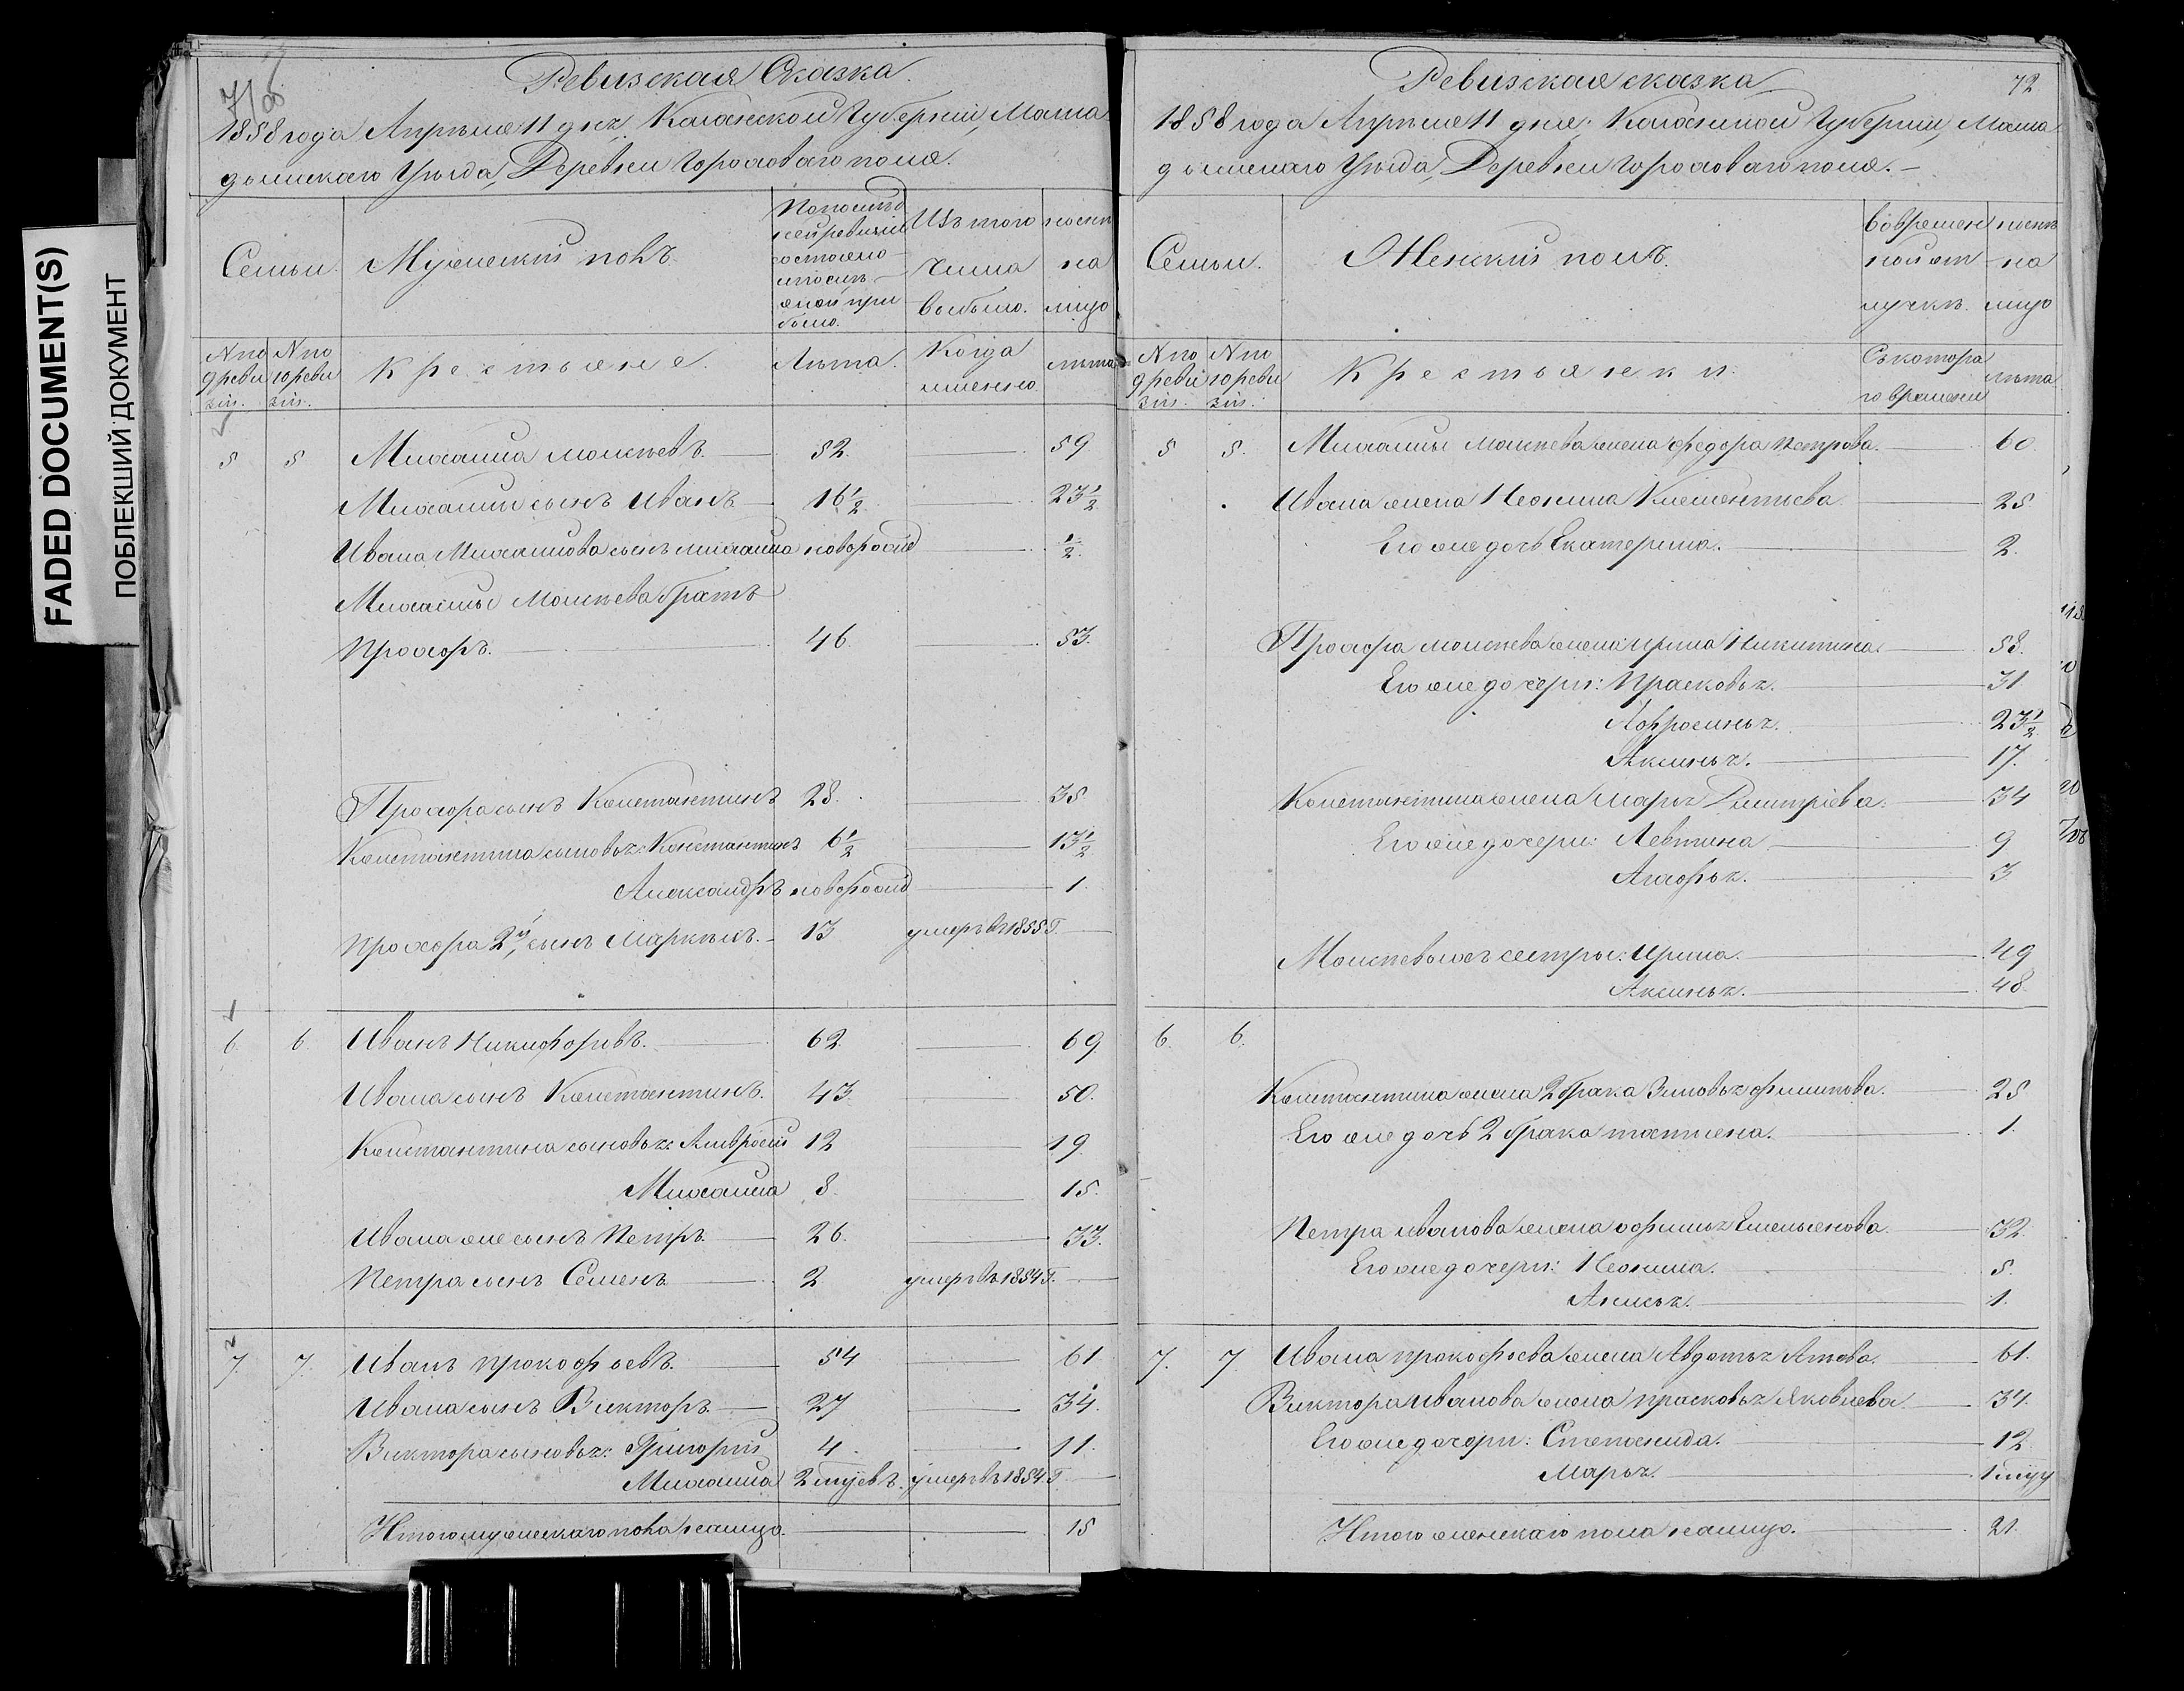 FADED DOCUMENT(S)
ПОБЛЕКШИЙ ДОКУМЕНТ
Ревизская Сказка.
1858 года Апреля 11 дня, Казанской Губернии, Мама
дышскаго Уѣзда, Деревни Горохова го поля.
Семьи. Мужескiй полъ.
По послѣд
ней ревизiи
состояло
и послѣ
оной при
было.
Изъ того
числа
выбыло.
нынѣ
на
лицо
№ по
9 реви
зiи.
№ по
10 реви
зiи.
Крестьяне.
Лѣта.
Когда
именно
лѣта
5 5 Михайла Моисѣевъ. 52. 59
Михайлы сынъ Иванъ 16 1/2 23 1/2
Ивана Михайлова сынъ Михайла новорожд 1/2
Михайлы Моисѣева братъ
Прохоръ. 46 53.
Прохора сынъ Константинъ 28. 35
Константина сыновья: Константинъ 6 1/2 13 1/2
Александръ новорожд 1.
Прохора 2й сынъ Маркелъ. 13 умеръ въ 1855 г.
6. 6. Иванъ Никифоровъ. 62. 69.
Ивана сынъ Константинъ. 43. 50.
Константина сыновья: Амвросiй 12 19.
Михайла 8. 15.
Ивана же сынъ Петръ. 26. 33.
Петра сынъ Семенъ 2. умеръ въ 1854 г.
7. 7. Иванъ Прокофьевъ. 54 61
Ивана сынъ Викторъ. 27 34.
Виктора сыновья: Григорiй 4. 11.
Михайла 2 мцевъ. умеръ въ 1854 г.
Итого мужескаго пола налицо. 15
Ревизская сказка 72
1858 года Апреля 11 дня. Казанской Губернии, Мама
дышскаго Уѣзда, Деревни Горохова го поля.
Семьи. Женскiй полъ.
Во времен
ной от
лучкѣ.
нынѣ
на
лицо
№ по
9 реви
зiи.
№ по
10 реви
зiи.
Крестьянки
Съ котора
го времени
лѣта
5 5. Михайлы Моисѣева жена Федора Петрова. 60.
Ивана жена Неонила Клементьева 25
Его же дочь Екатерина. 2.
Прохора Моисѣева жена Ирина Никитина. 58.
Его же дочери: Прасковья. 31
Афросинья. 23 1/2
Аксинья. 17.
Константина жена Марья Дмитрiева. 34
Его же дочери: Левтина 9
3
Моисѣевыхъ сестры: Ирина. 49
Аксинья. 48.
6. 6.
Константина жена 2 брака Зиновья Филипова. 25
Его же дочь 2 брака Татьяна. 1.
Петра Иванова жена Офимья Емельянова. 32.
Его же дочери: Неонила. 5.
Анисья. 1.
7. 7 Ивана Прокофьева жена Авдотья 61.
Виктора Иванова жена Прасковья Яковлева. 34.
Его же дочери: Степанида. 12
Марья. 1 мцу
Итого женскаго пола налицо. 21.